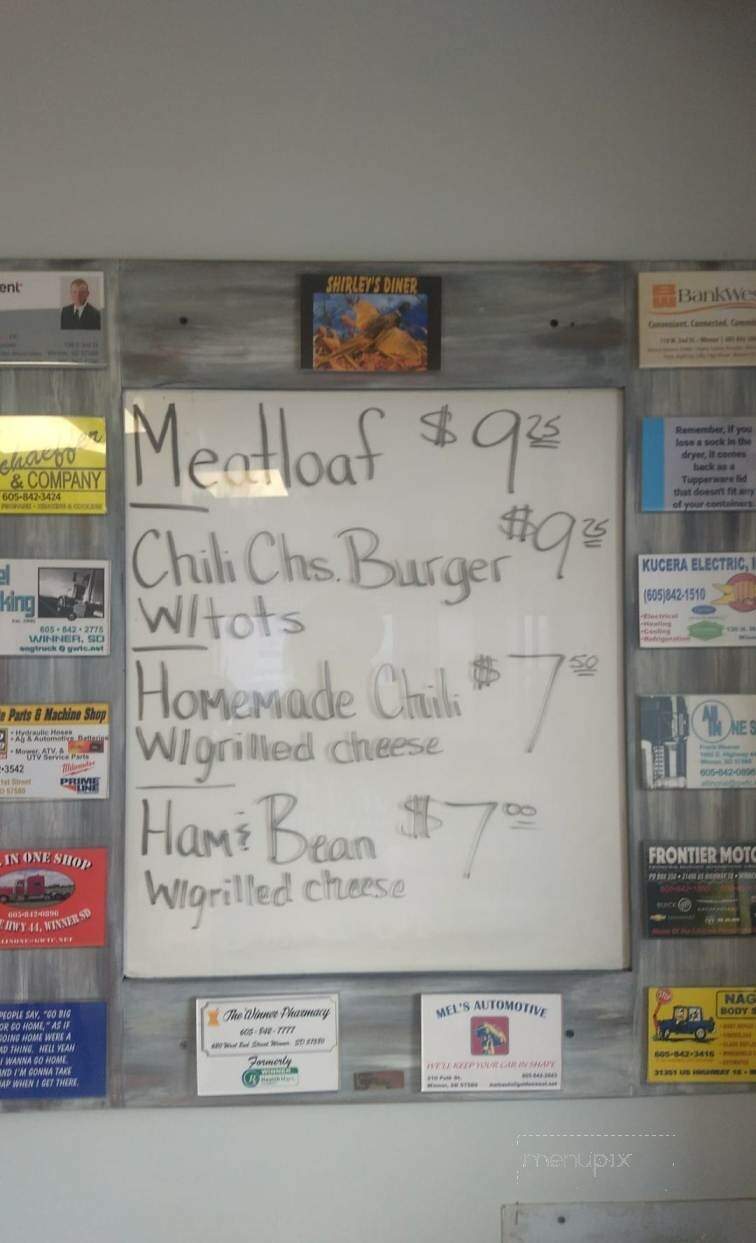 SHIRLEY'S DINER
Meatloaf $9 25
Chili Chs. Burger $9 25
W/tots
Homemade Chili $7 50
W/grilled cheese
Ham & Bean $7 00
W/grilled cheese
ent
& COMPANY
605-842-3424
king
605 • 842 • 2775
WINNER, SD
engtruck @ gwtc.net
Parts & Machine Shop
• Hydraulic Hoses
• Ag & Automotive Batteries
• Mower, ATV, &
UTV Service Parts
-3542
1st Street
57580
Milwaukee
PRIME
LINE
IN ONE SHOP
605-842-0896
HWY 44, WINNER SD
PEOPLE SAY, "GO BIG
OR GO HOME," AS IF
GOING HOME WERE A
BAD THING. HELL YEAH
I WANNA GO HOME.
AND I'M GONNA TAKE
NAP WHEN I GET THERE.
The Winner Pharmacy
605-842-7777
Formerly
WINNER
Health Mart
MEL'S AUTOMOTIVE
WE'LL KEEP YOUR CAR IN SHAPE
BankWes
Convenient. Connected.
Remember, if you
lose a sock in the
dryer, it comes
back as a
Tupperware lid
that doesn't fit any
of your containers.
KUCERA ELECTRIC, I
(605)842-1510
•Electrical
•Heating
•Cooling
•Refrigeration
605-842-0896
FRONTIER MOTO
BUICK
RAM
NAG
BODY S
605-842-3416
31351 US HIGHWAY 18
menupix